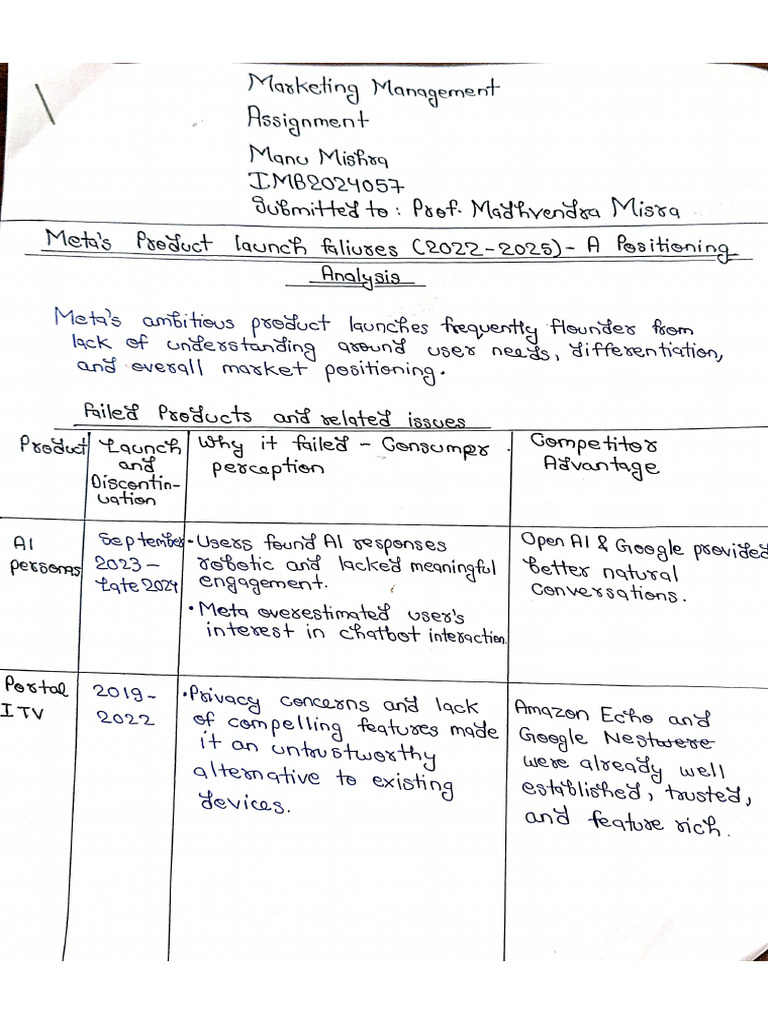 Marketing Management
Assignment
Manu Mishra
IMB2024057
Submitted to : Prof. Madhvendra Misra
Meta's Product launch faliures (2022-2025) - A Positioning
Analysis
Meta's ambitious product launches frequently flounder from
lack of understanding around user needs, differentiation,
and overall market positioning.
Failed Products and related issues
Product
Launch
and
Discontin-
uation
Why it failed - Consumer
perception
Competitor
Advantage
AI
personas
September
2023 -
Late 2024
• Users found AI responses
robotic and lacked meaningful
engagement.
• Meta overestimated user's
interest in chatbot interaction.
Open AI & Google provided
better natural
conversations.
Portal
I TV
2019 -
2022
• Privacy concerns and lack
of compelling features made
it an untrustworthy
alternative to existing
devices.
Amazon Echo and
Google Nest were
were already well
established, trusted,
and feature rich.